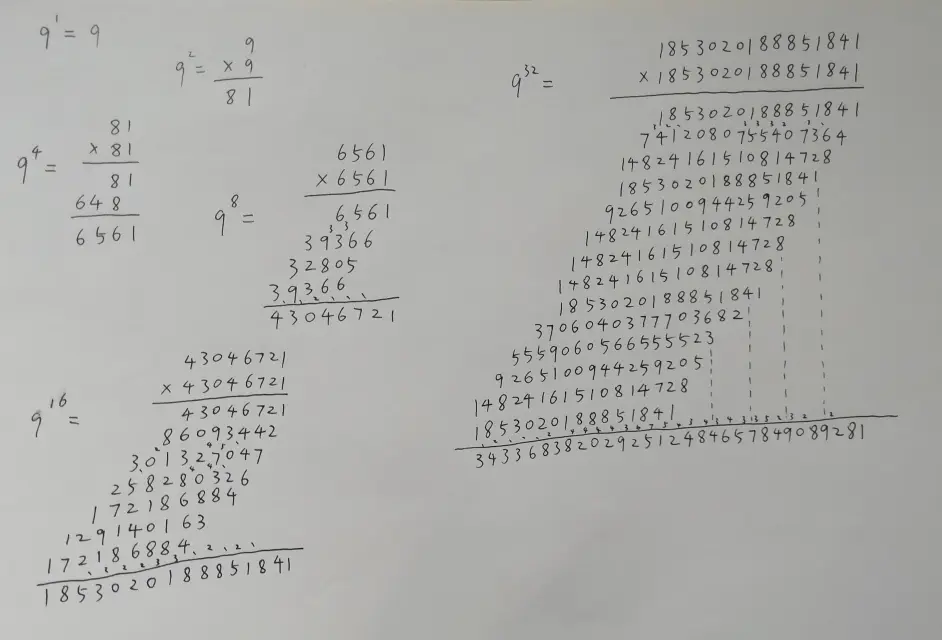 9¹ = 9
9² =
9
× 9
81
9⁴ =
81
× 81
81
648
6561
9⁸ =
6561
× 6561
6561
39366
32805
39366
43046721
9¹⁶ =
43046721
× 43046721
43046721
86093442
301327047
258280326
172186884
129140163
172186884
1853020188851841
9³² =
1853020188851841
× 1853020188851841
1853020188851841
7412080755407364
14824161510814728
1853020188851841
9265100944259205
14824161510814728
14824161510814728
14824161510814728
1853020188851841
3706040377703682
5559060566555523
9265100944259205
14824161510814728
1853020188851841
3433683820292512484657849089281